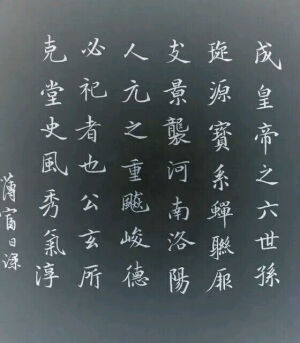 成皇帝之六世孫
琁源寶系蟬聯
景襲河南洛陽
人元之重飈峻德
必祀者也公玄所
克堂史風秀氣淳